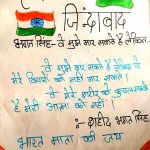 जिन्दाबाद
भगत सिंह - वे मुझे मार सकते है लेकिन
मेरे विचारों को नहीं मार सकते।
वे मेरे शरीर को कुचल सकते
है मेरी आत्मा को नहीं।
:- शहीद भगत सिंह
भारत माता की जय